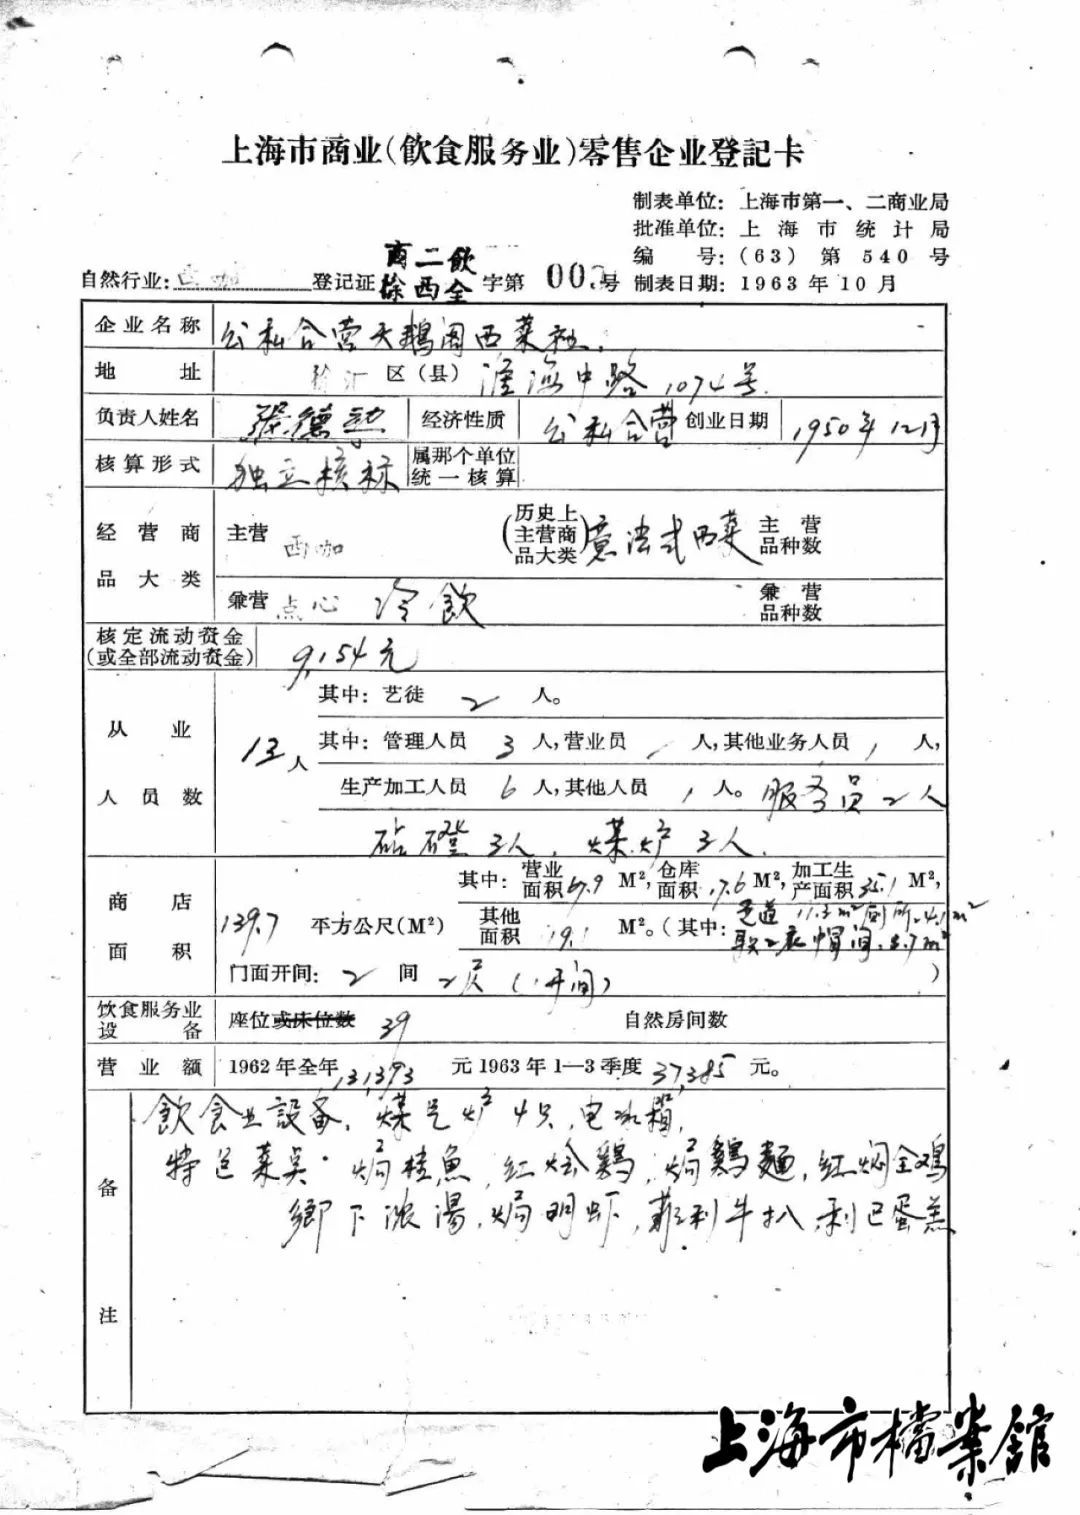 上海市商业(飲食服务业)零售企业登記卡
制表单位：上海市第一、二商业局
批准单位：上海市统计局
编　号：(63)第540号
自然行业：西咖 登记证 商二飲 徐西全 字第 00 号 制表日期：1963年10月
企业名称 公私合营天鹅阁西菜社
地址 徐汇区(县) 淮海中路1074号
负责人姓名 张德 经济性质 公私合营 创业日期 1950年12月
核算形式 独立核标 属那个单位统一核算
经营商品大类 主营 西咖 (历史上主营商品大类) 意法式西菜 主营品种数
兼营 点心 冷飲 兼营品种数
核定流动资金(或全部流动资金) 9,154元
从业人员数 13人 其中：艺徒 2 人。
其中：管理人员 3 人，营业员 / 人，其他业务人员 1 人，
生产加工人员 6 人，其他人员 1 人。服务员2人
砧磴3人，煤炉3人。
商店面积 139.7 平方公尺(M²) 其中：营业面积67.9 M²，仓库面积17.6 M²，加工生产面积35.1 M²，
其他面积 19.1 M²。(其中：走道11.3m² 厕所4.1m²
衣帽间3.7m²)
门面开间：2 间 2层(1开间)
飲食服务业设备 座位或床位数 39 自然房间数
营业额 1962年全年131,393元 1963年1—3季度37,385元。
备注 飲食业設备，煤气炉4只，电冰箱，
特色菜类：焗桂魚，红烩鷄，焗鷄麵，红焖全鸡
鄉下浓湯，焗明虾，菲利牛扒，利巴蛋羔
上海市檔案館